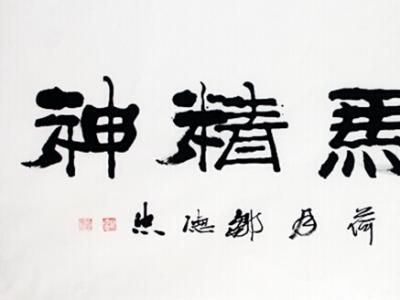 馬精神
荷月鄒德忠